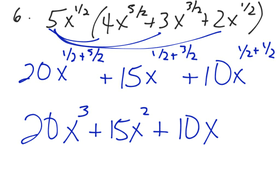 6. 5x^{1/2}(4x^{5/2}+3x^{3/2}+2x^{1/2})
20x^{1/2+5/2} +15x^{1/2+3/2} +10x^{1/2+1/2}
20x^3+15x^2+10x